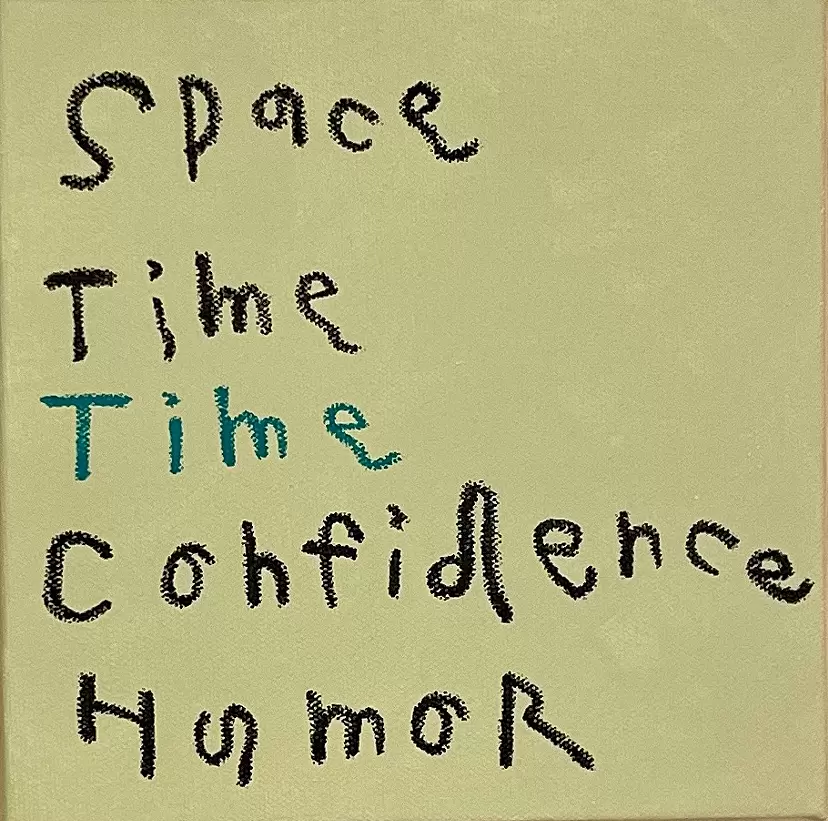 Space
Time
Time
Confidence
HumoR